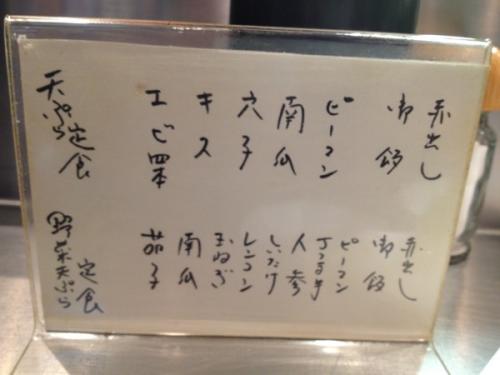 天ぷら定食
エビ四本
キス
穴子
南瓜
ピーマン
御飯
赤出し
野菜天ぷら定食
茄子
南瓜
玉ねぎ
レンコン
しいたけ
人参
ピーマン
御飯
赤出し